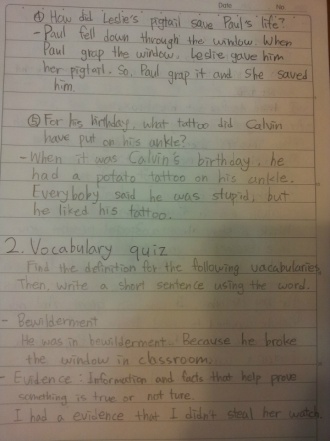 Date
No
④ How did Leslie's pigtail save Paul's life?
- Paul fell down through the window. When
Paul grap the window, Leslie gave him
her pigtail. So, Paul grap it and she saved
him.
⑤ For his birthday, what tattoo did Calvin
have put on his ankle?
- When it was Calvin's birthday, he
had a potato tattoo on his ankle.
Everyboby said he was stupid, but
he liked his tattoo.
2. Vocabulary quiz
Find the definition for the following vacabularies,
Then, write a short sentence using the word.
- Bewilderment
He was in bewilderment. Because he broke
the window in classroom.
- Evidence : Information and facts that help prove
something is true or not ture.
I had a evidence that I didn't steal her watch